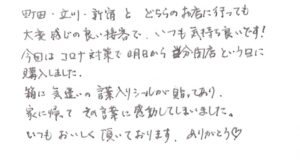 町田・立川・新宿と どちらのお店に行っても
大変感じの良い接客で、いつも気持ち良いです!
今回はコロナ対策で明日から当分閉店という日に
購入しました。
箱に気遣いの言葉入りシールが貼ってあり、
家に帰って その言葉に感動してしまいました。
いつもおいしく頂いております。ありがとう♡